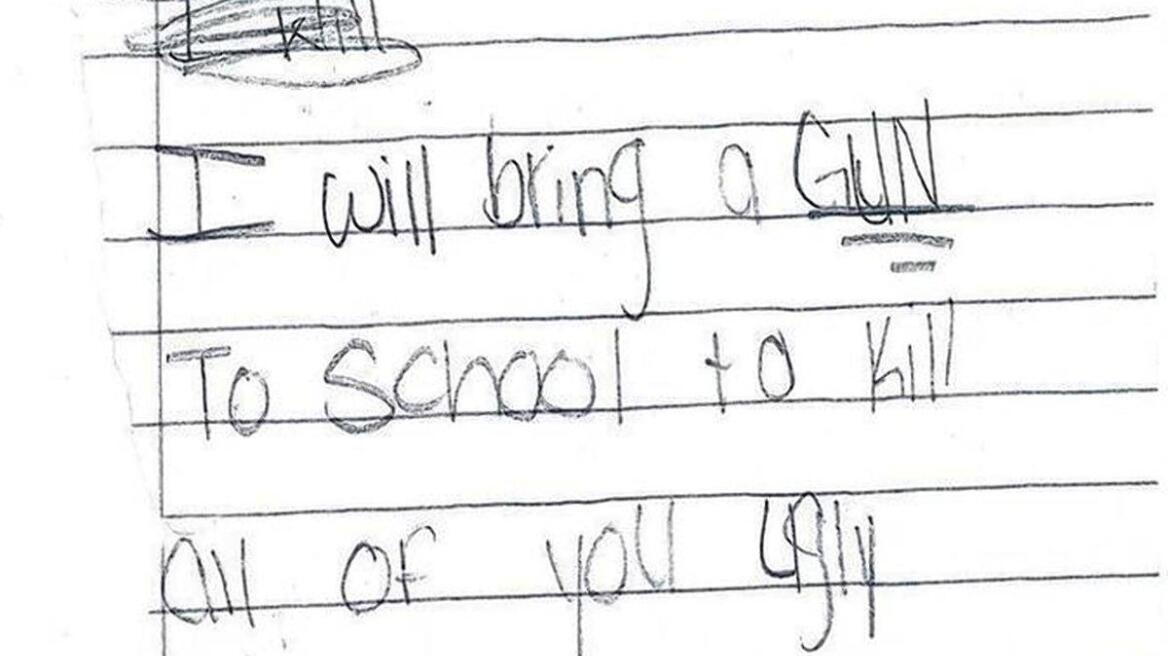 I kill
I will bring a GUN
To School to kill
all of you ugly